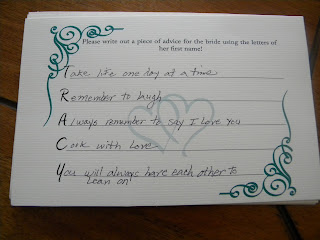 Please write out a piece of advice for the bride using the letters of
her first name!
Take life one day at a time
Remember to laugh
Always remember to say I love you
Cook with love
You will always have each other to
lean on!